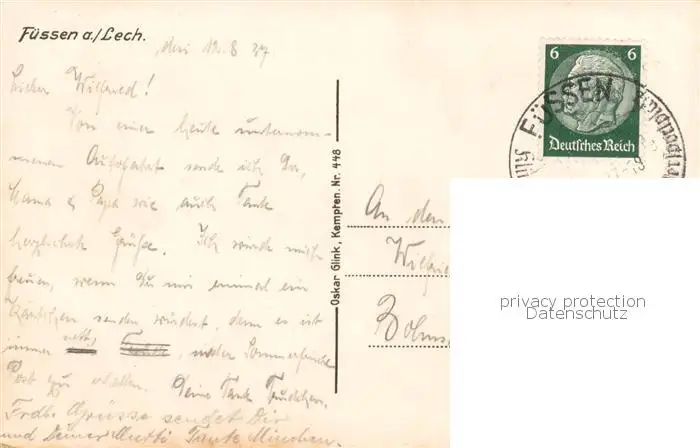 Füssen a./Lech.
den 12.8 37
Lieber Wilfried!
Von einer heute unternom-
menen Autofahrt sende ich Dir,
Mama & Papa wie auch Tante
herzlichste Grüße. Ich würde mich
freuen, wenn Du mir einmal ein
Kärtchen senden würdest, denn es ist
immer nett, in der Sommerfrische
Post zu erhalten. Deine Tante
Frdl. Grüsse sendet Dir
und Deiner Mutti Tante Minchen.
Oskar Glink, Kempten. Nr. 448
6 6
Deutsches Reich
FÜSSEN
An den
privacy protection
Datenschutz